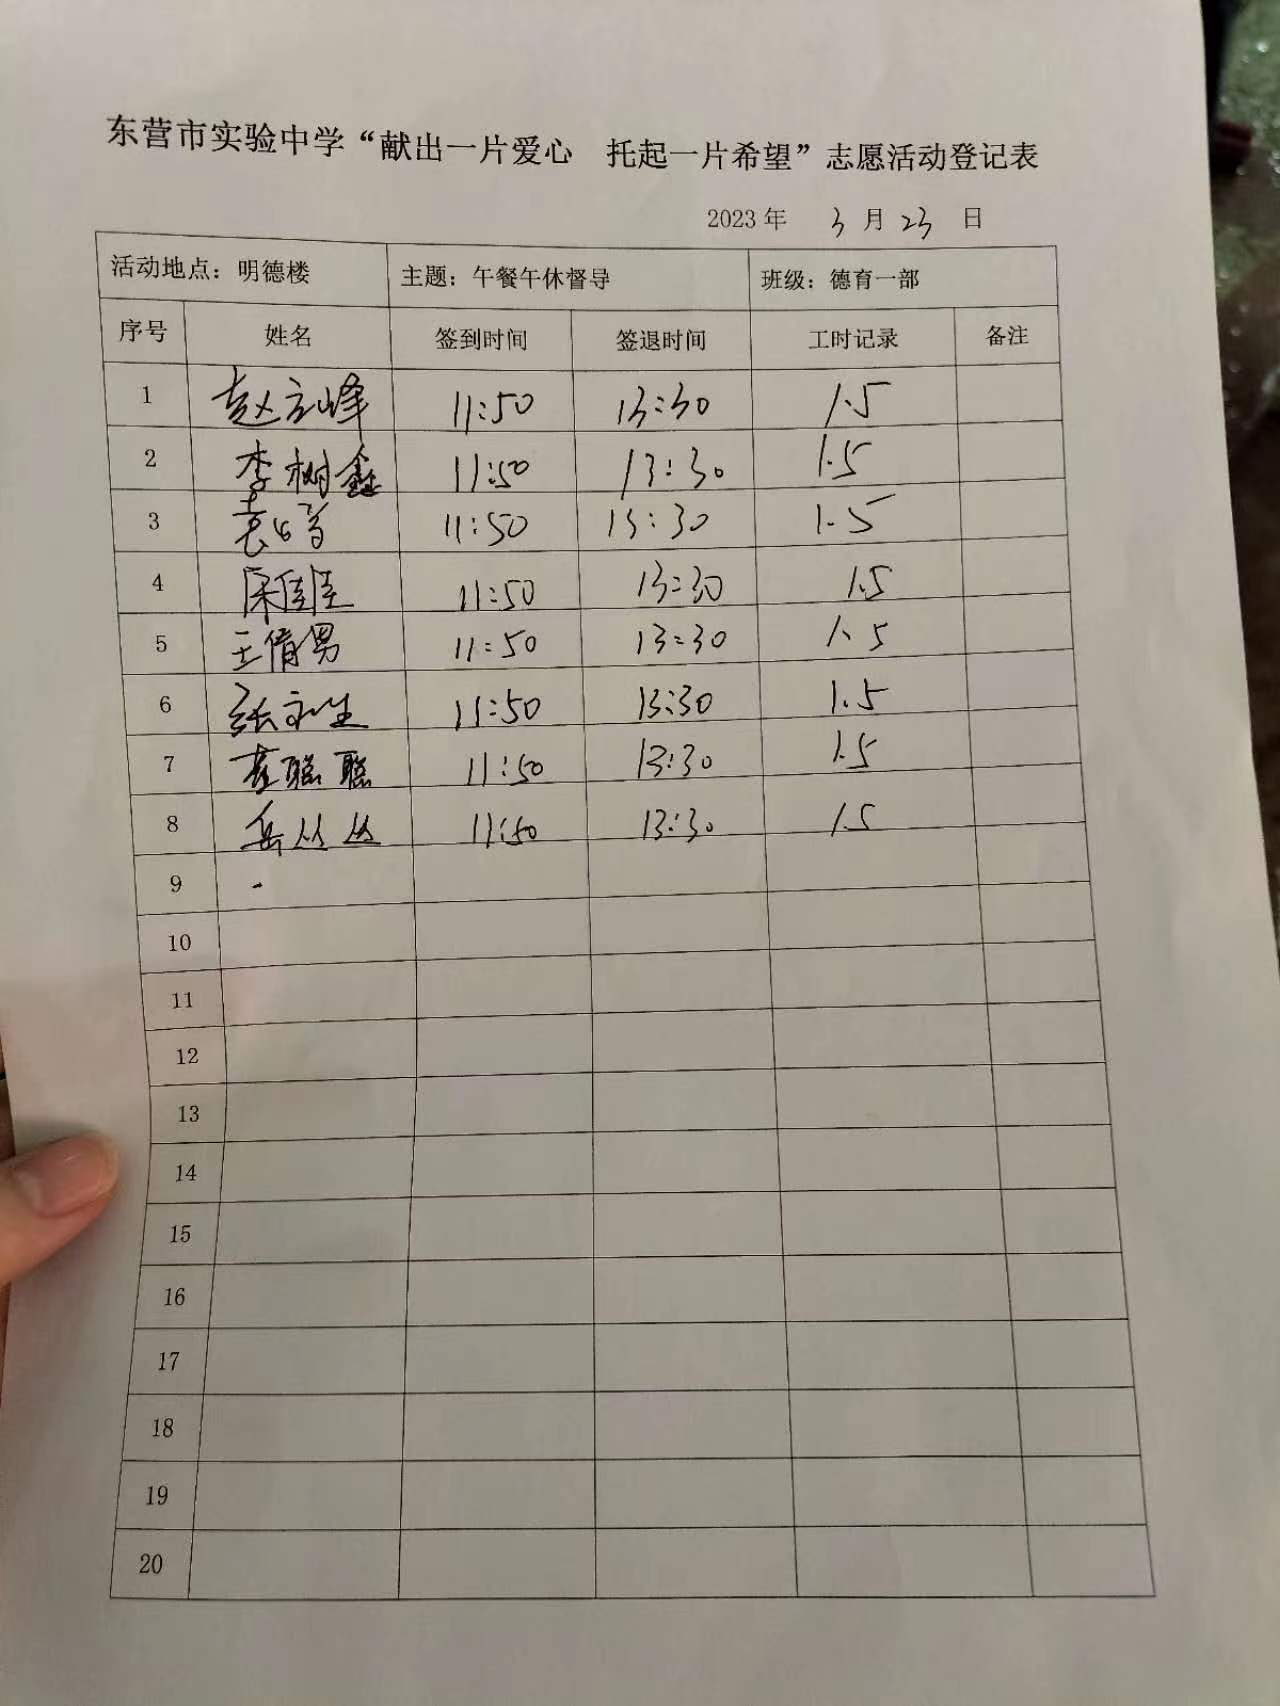 东营市实验中学“献出一片爱心 托起一片希望”志愿活动登记表
2023 年 3 月 23 日
活动地点：明德楼 主题：午餐午休督导 班级：德育一部
序号 姓名 签到时间 签退时间 工时记录 备注
1 赵立峰 11:50 13:30 1.5
2 李树鑫 11:50 13:30 1.5
3 袁 11:50 13:30 1.5
4 11:50 13:30 1.5
5 王倩男 11:50 13:30 1.5
6 张永生 11:50 13:30 1.5
7 聪聪 11:50 13:30 1.5
8 岳丛丛 11:50 13:30 1.5
9
10
11
12
13
14
15
16
17
18
19
20